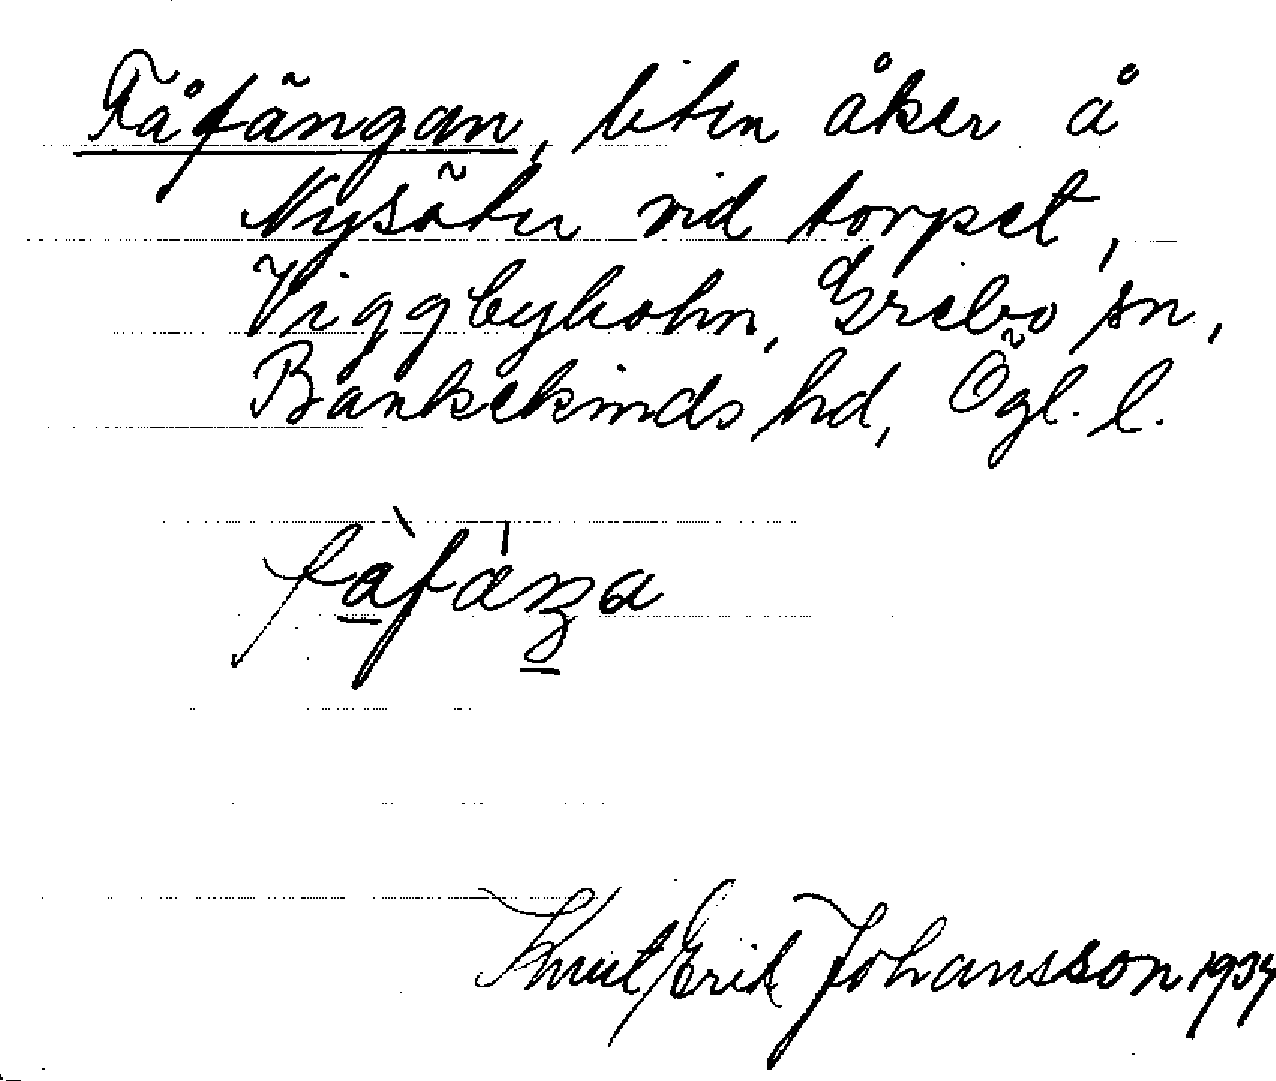 Fåfängan, liten åker å
Nysäter vid torpet,
Viggbyholm, Grebo sn,
Bankekinds hd, Ögl. l.
fàfäŋa
Knut Erik Johansson 1934